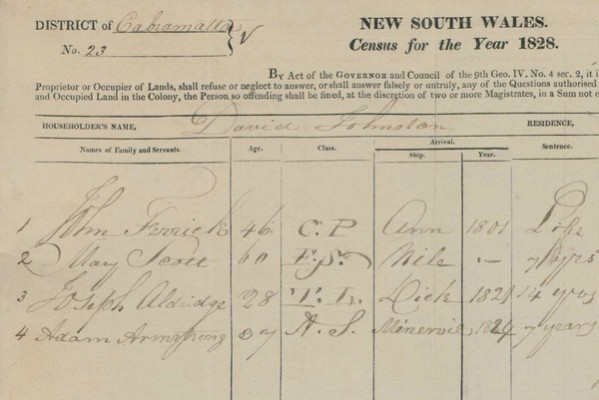 DISTRICT of Cabramatta
No. 23
NEW SOUTH WALES.
Census for the Year 1828.
BY Act of the GOVERNOR and Council of the 9th Geo. IV. No. 4 sec. 2, it i
Proprietor or Occupier of Lands, shall refuse or neglect to answer, or shall answer falsely or untruly, any of the Questions authorised
and Occupied Land in the Colony, the Person so offending shall be fined, at the discretion of two or more Magistrates, in a Sum not e
HOUSEHOLDER'S NAME, David Johnston RESIDENCE,
Names of Family and Servants. Age. Class. Arrival. Sentence.
Ship. Year.
1 John 46 C. P Ann 1801 Life
2 Mary Scott 60 F.S. Nile — 7 years
3 Joseph Aldridge 28 T. L. Dick 1821 14 yrs
4 Adam Armstrong A. S. Minerva 1824 7 years